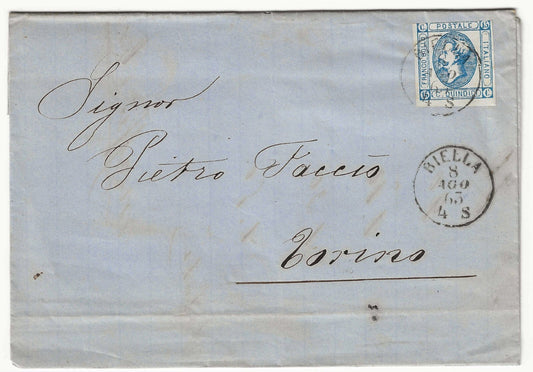 FRANCO BOLLO
POSTALE
ITALIANO
C. QUINDICI
15 C
C 15
Signor
Pietro Taccis
Torino
BIELLA
8
AGO
63
4 S